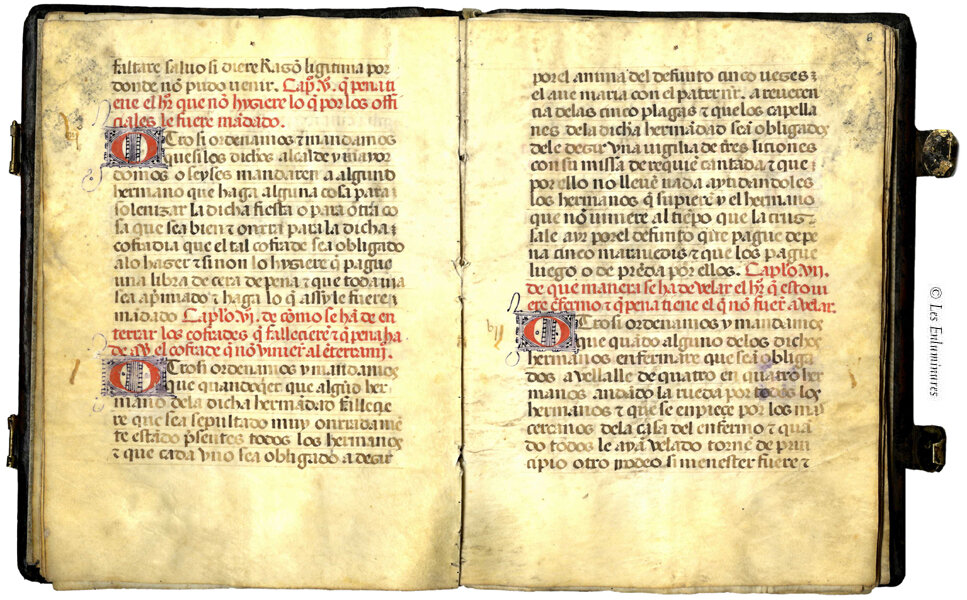 faltare saluo si diere Razõ ligitima por
donde nõ pudo uenir. Capº. v. q̃ pena ti
ene el hrº que nõ hyziere lo q̃ por los offi
ciales le fuere mãdado.
Otrosi ordenamos ⁊ mandamos
que si los dichos alcalde y mayor
domos o seyses mandaren a algund
hermano que haga alguna cosa para
solenizar la dicha fiesta o para otra co
sa que sea bien ⁊ onrra para la dicha
cofradia que el tal cofrade sea obligado
alo hazer ⁊ si non lo hyziere q̃ pague
una libra de cera de pena ⁊ que toda uia
sea ap̃miado ⁊ haga lo q̃ assy le fuere
mãdado Capl̃o. vj. de cõmo se hã de en
terrar los cofrades q̃ falleciere ⁊ q̃ pena ha
de auer el cofrade q̃ nõ viniere al ẽterramjº.
Otrosi ordenamos y mandamos
que quandoq̃er que algũd her
mano dela dicha hermãdad fallecie
re que sea sepultado muy onrradamẽ
te estãdo p̃sentes todos los hermanos
⁊ que cada vno sea obligado a dezir
6
por el anima del defunto cinco uezes
el aue maria con el paternr̃. a reueren
cia delas cinco plagas ⁊ que los capella
nes dela dicha hermãdad seã obligados
de le dezir vna vigilia de tres liciones
con su missa de requiẽ cantada ⁊ que
por ello no lleuẽ nada ayudandoles
los hermanos q̃ supierẽ y el hermano
que nõ uiniere al tiẽpo que la cruz
sale por el defunto que pague de pe
na cinco marauedis ⁊ que los pague
luego o de prẽda por ellos. Capl̃o. vij.
de que manera se ha de velar el hrº q̃ estoui
ere ẽfermo ⁊ q̃ pena tiene el q̃ nõ fuere a velar.
Otrosi ordenamos y mandamos
que quãdo alguno delos dichos
hermanos enfermare que seã obliga
dos a velalle de quatro en quatro her
manos andãdo la rueda por todos los
hermanos ⁊ que se enpieçe por los mas
cercanos dela casa del enfermo ⁊ quã
do todos le ayã velado torne de prin
cipio otro rrodeo si menester fuere ⁊
© Les Enluminures